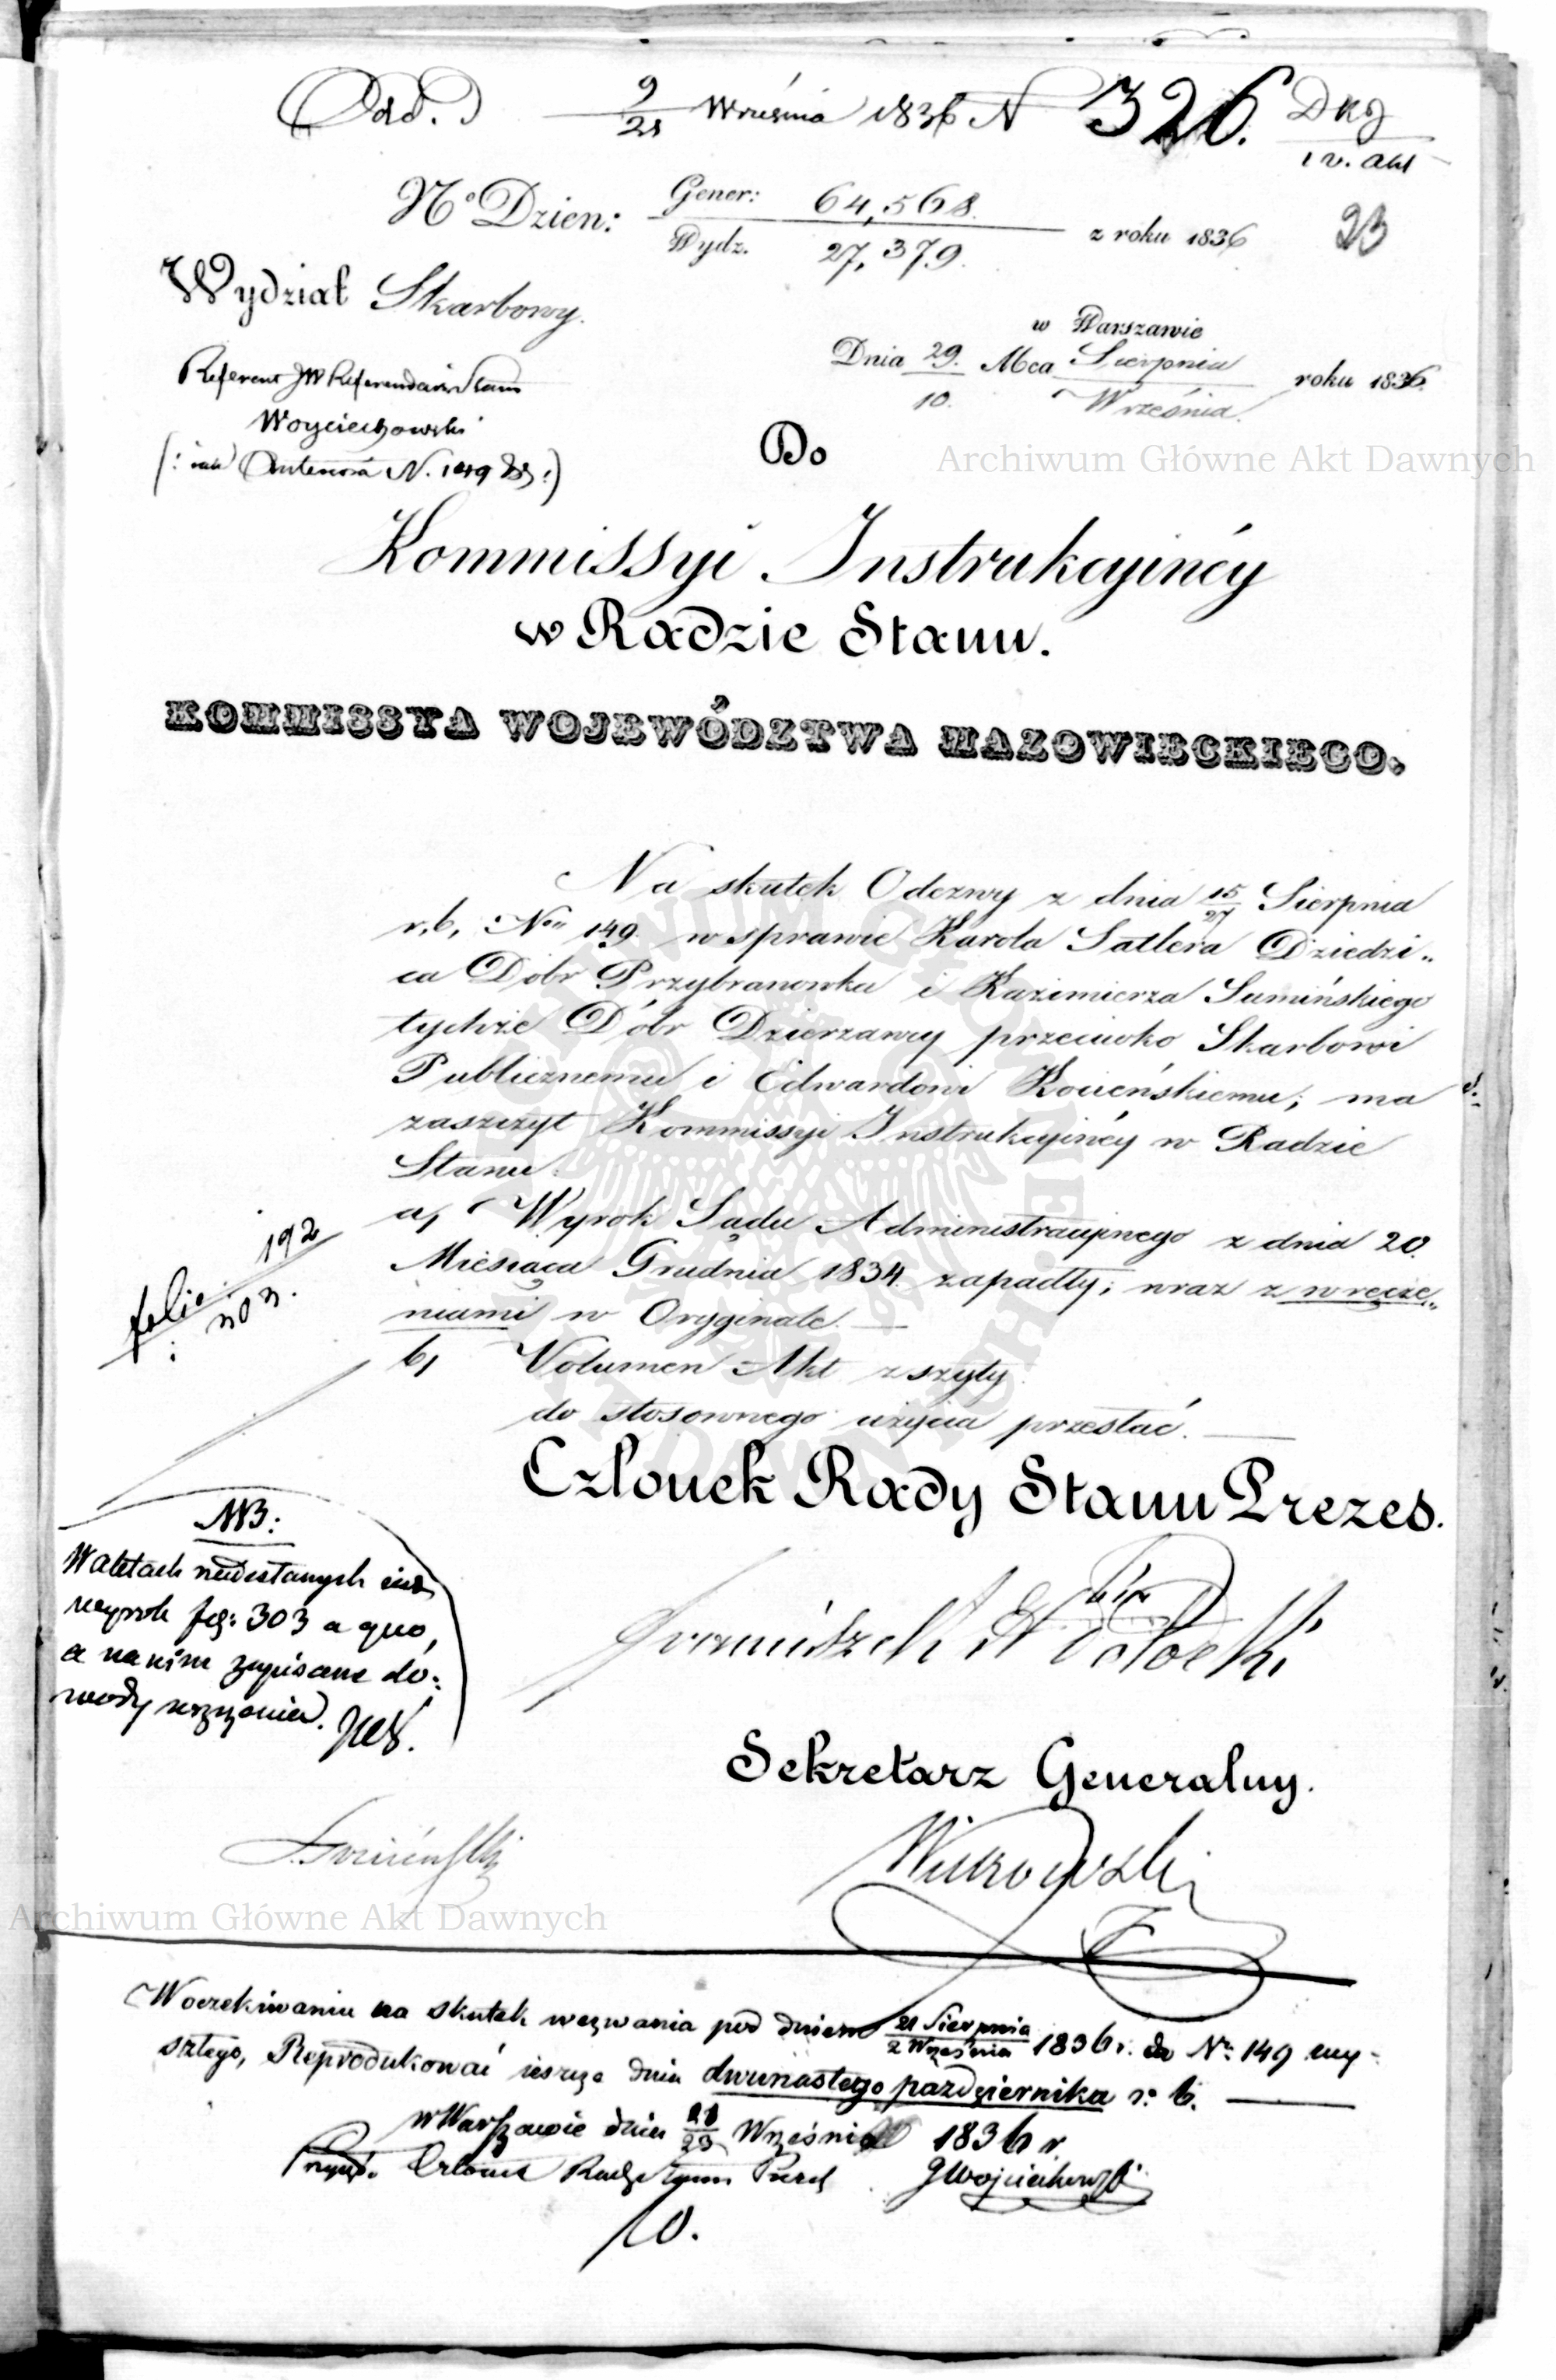 Odd. D. 9/21 Września 1836 N 326. DKJ
1 v. akt
N° Dzien: Gener: 64,568.
Wydz. 27,379. z roku 1836
23
Wydział Skarbowy.
w Warszawie
Dnia 29./10. Mca Sierpnia/Września. roku 1836.
Referent JW Referendarz Stanu
Woyciechowski
Do
Archiwum Główne Akt Dawnych
Kommissyi Instrukcyinéy
w Radzie Stanu.
KOMMISSYA WOJEWÓDZTWA MAZOWIECKIEGO.
Na skutek Odezwy z dnia 15/27 Sierpnia
r. b. Nro 149. w sprawie Karola Satlera Dziedzi„
ca Dóbr Przybranowka i Kazimierza Sumińskiego
tychże Dóbr Dzierzawcy przeciwko Skarbowi
Publicznemu i Edwardowi Kocieńskiemu; ma
zaszczyt Kommissyi Instrukcyinéy w Radzie
Stanu.
a, Wyrok Sądu Administracyjnego z dnia 20.
Miesiąca Grudnia 1834. zapadły; wraz z wręcze„
niami w Oryginale.
folio 192
i 303.
b, Volumen Akt zszyty.
do stosownego użycia przesłać.
Członek Rady Stanu Prezes.
NB:
W aktach nadesłanych iest
wyrok fol: 303 a quo,
a na nim zapisane do:
wody wręczenia.
Sekretarz Generalny.
Archiwum Główne Akt Dawnych
W oczekiwaniu na skutek wezwania pod dniem 21 Sierpnia/2 Września 1836 r. do Nr: 149 wy-
szłego, Reprodukować ieszcze dnia dwunastego pazdziernika r. b.
w Warszawie dnia 11/23 Września 1836 r
Członek Rady Stanu Prezes JWojciechowski